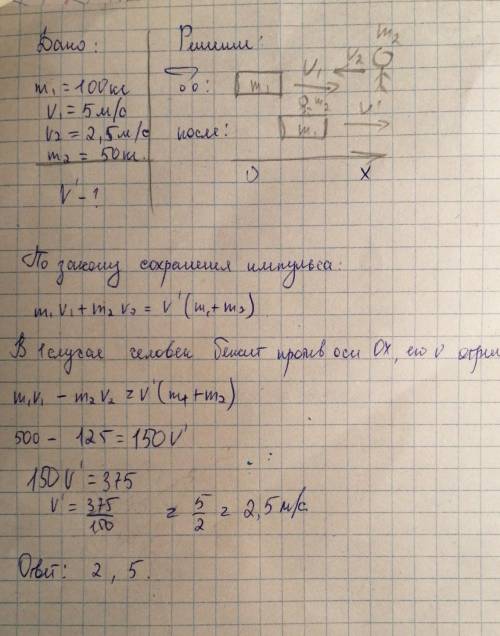 Дано:
Решение:
m₁ = 100 кг
V₁ = 5 м/с
V₂ = 2,5 м/с
m₂ = 50 кг.
V' - ?
до:
m₁
V₁
V₂
m₂
после:
m₂
m₁
V'
0
X
По закону сохранения импульса:
m₁V₁ + m₂V₂ = V'(m₁+m₂)
В 1 случае человек бежит против оси OX, его v отриц
m₁V₁ - m₂V₂ = V'(m₁+m₂)
500 - 125 = 150V'
150V' = 375
V' = 375/150 = 5/2 = 2,5 м/с.
Ответ: 2,5.